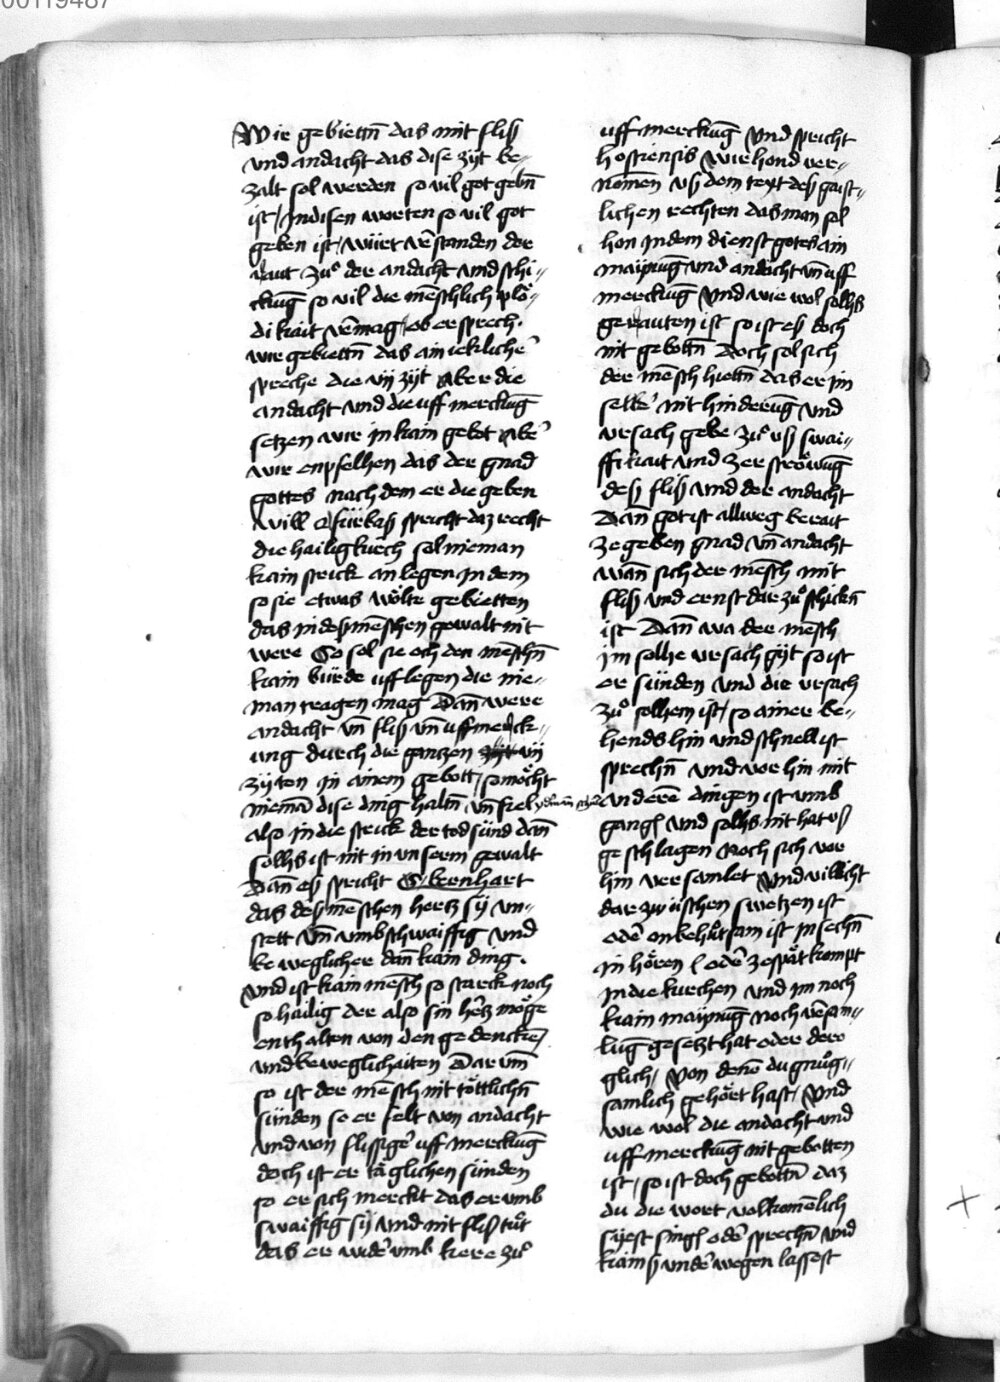 00119487
Wir gebiettn̄ das mit fliſʒ
vnd andacht das diſe zyt be-
zalt ſol werden ſo vil got gebn̄
iſt / Jn diſen worten ſo vil got
geben iſt / wúrt v̄ſtanden der
laut zuͦ der andacht vnd ſchi-
ckūg ſo vil die mēſchlich ploͤ-
dikait v̄mag / ob er ſprech .
wir gebiettn̄ das ain ieklich'
ſpreche die vij zyt Aber die
andacht vnd die vff merckūg
ſetzen wir in kain gebot Ab'
wir enpfelhen das der gnad
gottes nach dem er die geben
will fúrbaſʒ ſpricht daz recht
die hailig kirch ſol nieman
kain ſtrick an legen Jn dem
ſo ſie etwas woͤlte gebietten
das in deſʒ menſchen gewalt nit
were So ſol ſie och den mēſchn̄
kain búrde vff legen die nie-
man tragen mag Dan̄ were
andacht vn̄ fliſʒ vn̄ vffmerck-
ung durch die gantzen vij
zyten in ainem gebott / ſo moͤcht
niemā diſe ding haltn̄ vn̄ fiel yderman
alſo in die ſtrick der todſúnd dan̄
ſollhs iſt nit in vnſerm gewalt
Dan̄ eſʒ ſpricht S bernhart
das deſʒ mēſchen hertz ſy vn-
ſtett vn̄ vmbſchwaiffig vnd
beweglicher dan̄ kain ding .
Vnd iſt kain mēſch ſo ſtarck noch
ſo hailig der alſo ſin h'tz moͤge
enthalten von den gedencken
vnd beweglichaiten Darvm̄
ſo iſt der mēſch nit toͤttlichn̄
ſúnden ſo er felt von andacht
vnd von fliſſig' vff merckūg
doch iſt er taͤglichen ſúnden
ſo er ſich merckt das er vmb
ſwaiffig ſy vnd nit fliſʒ tuͤt
das er wid' vmb kere zuͦ
vff merckūg Vnd ſpricht
hoſtienſis Wir hond ver-
nomen vſʒ dem text deſʒ gaiſt-
lichen rechten das man ſol
hon in dem dienſt gotes ain
maynūg vnd andacht vn̄ vff
merckūg Vnd wie wol ſollhs
geraͮten iſt ſo iſt eſʒ doch
nit gebottn̄ Doch ſol ſich
der mēſch hiettn̄ das er im
ſelb' nit hinderūg vnd
vrſach gebe zuͦ vſʒ ſwai-
ffikait vnd zerſtroͤwūg
deſʒ fliſʒ vnd der andacht
Dan̄ got iſt allweg berait
ze geben gnad vn̄ andacht
wan̄ ſich der mēſch mit
fliſʒ vnd ernſt dar zuͦ ſchickn̄
iſt Dan̄ wa der mēſch
im ſolhe vrſach gyt ſo iſt
er ſúnden vnd die vrſach
zuͦ ſollhem iſt / ſo ainer be-
hends hin vnd ſchnell iſt
ſprechn̄ vnd vor hin mit
anderē dingen iſt vmb
gangē vnd ſollhs nit hat vſʒ
geſchlagen Noch ſich vor
hin verſamlet Vnd villicht
dar zwúſchen ſwetzen iſt
od' onbehuͤtſam iſt in ſechn̄
in hoͤren / od' ze ſpaͤt kompt
in die kirchen vnd im noch
kain maynūg noch v̄ſam-
lūg geſetzt hat oder der
glich / Von denē du gnuͦg-
ſamlich gehoͤrt haſt / Vnd
wie wol die andacht vnd
vff merckūg nit gebotten
iſt / ſo iſt doch gebottn̄ daz
du die wort volkomēlich
ſyeſt ſingē od' ſprechn̄ vnd
kainſʒ vnd' wegen laſſeſt